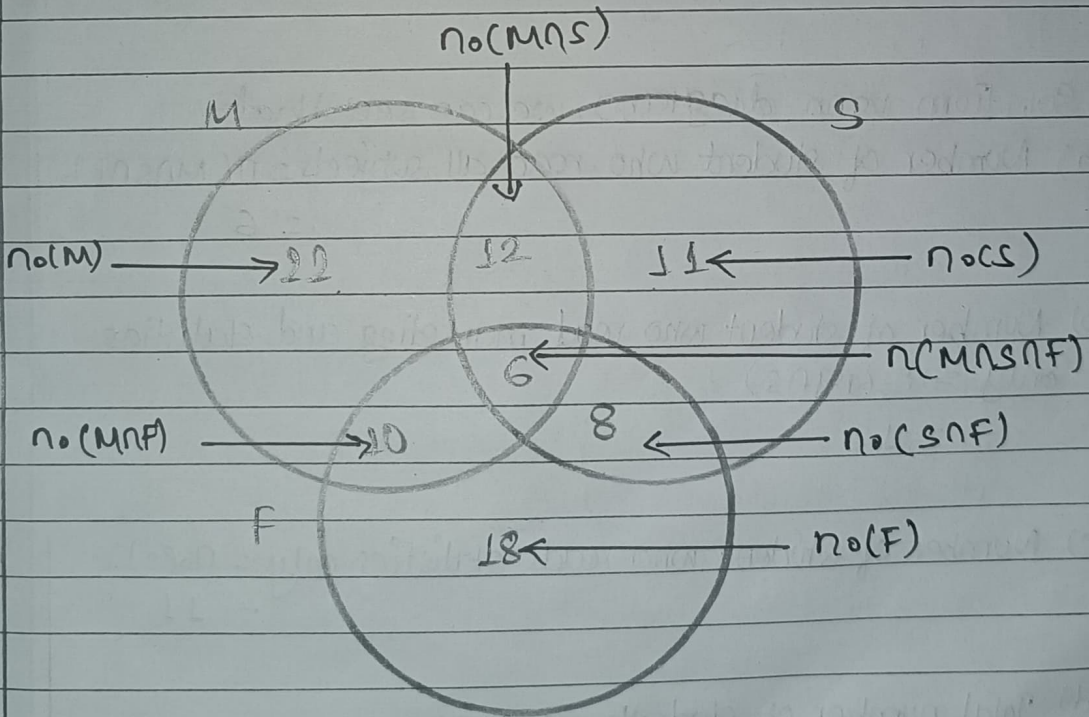 no(M∩S)
M
S
no(M)
22
12
11
no(S)
6
n(M∩S∩F)
no(M∩F)
10
8
no(S∩F)
F
18
no(F)